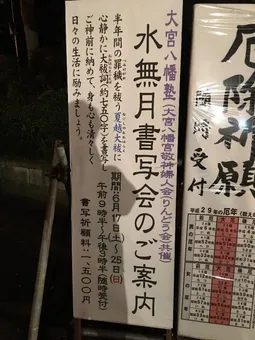 大宮八幡塾(大宮八幡宮敬神婦人会(りんどう会)共催)
水無月書写会のご案内
期間:6月17日(土)~25日(日)
午前9時半~午後3時半(随時受付)
半年間の罪穢を祓う夏越大祓に
心静かに大祓詞(約七五〇字)を書写し
ご神前に納めて、身も心も清々しく
日々の生活に励みましょう。
書写祈願料:一、五〇〇円
厄除祈願
随時受付
平成29年の厄年